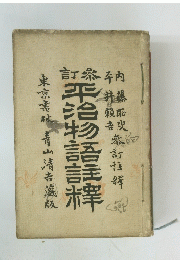 内藤耻叟
平井頼吉 参訂註釋
参訂
平治物語註釋
東京書肆 青山清吉藏版